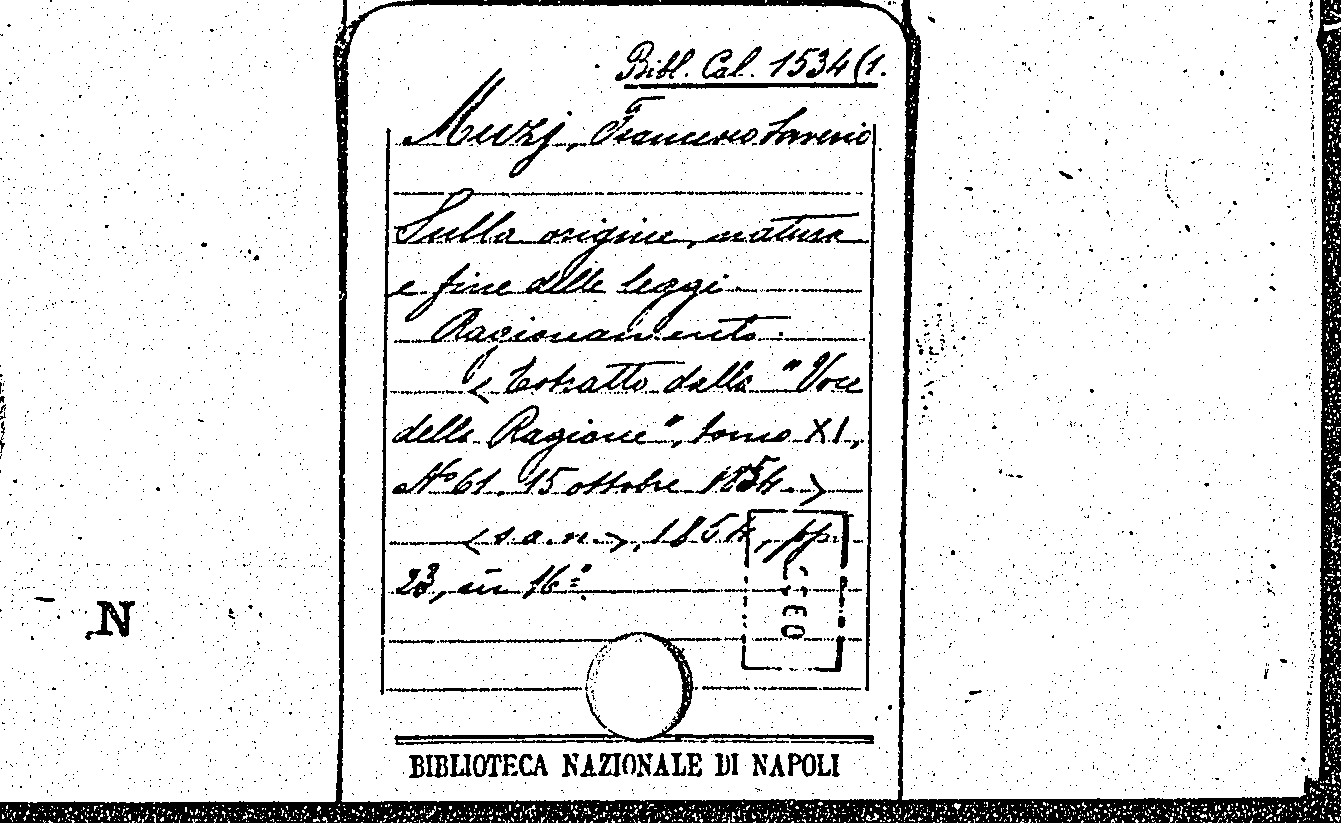 Bibl. Cal. 1534(1.
Muzj, Francesco Saverio
Sulla origine, natura
e fine delle leggi
Ragionamento.
< Estratto dalla "Voce
della Ragione", tomo XI,
N° 61. 15 ottobre 1854. >
< s.a.n. >, 1854, pp.
23, in 16°.
N
BIBLIOTECA NAZIONALE DI NAPOLI